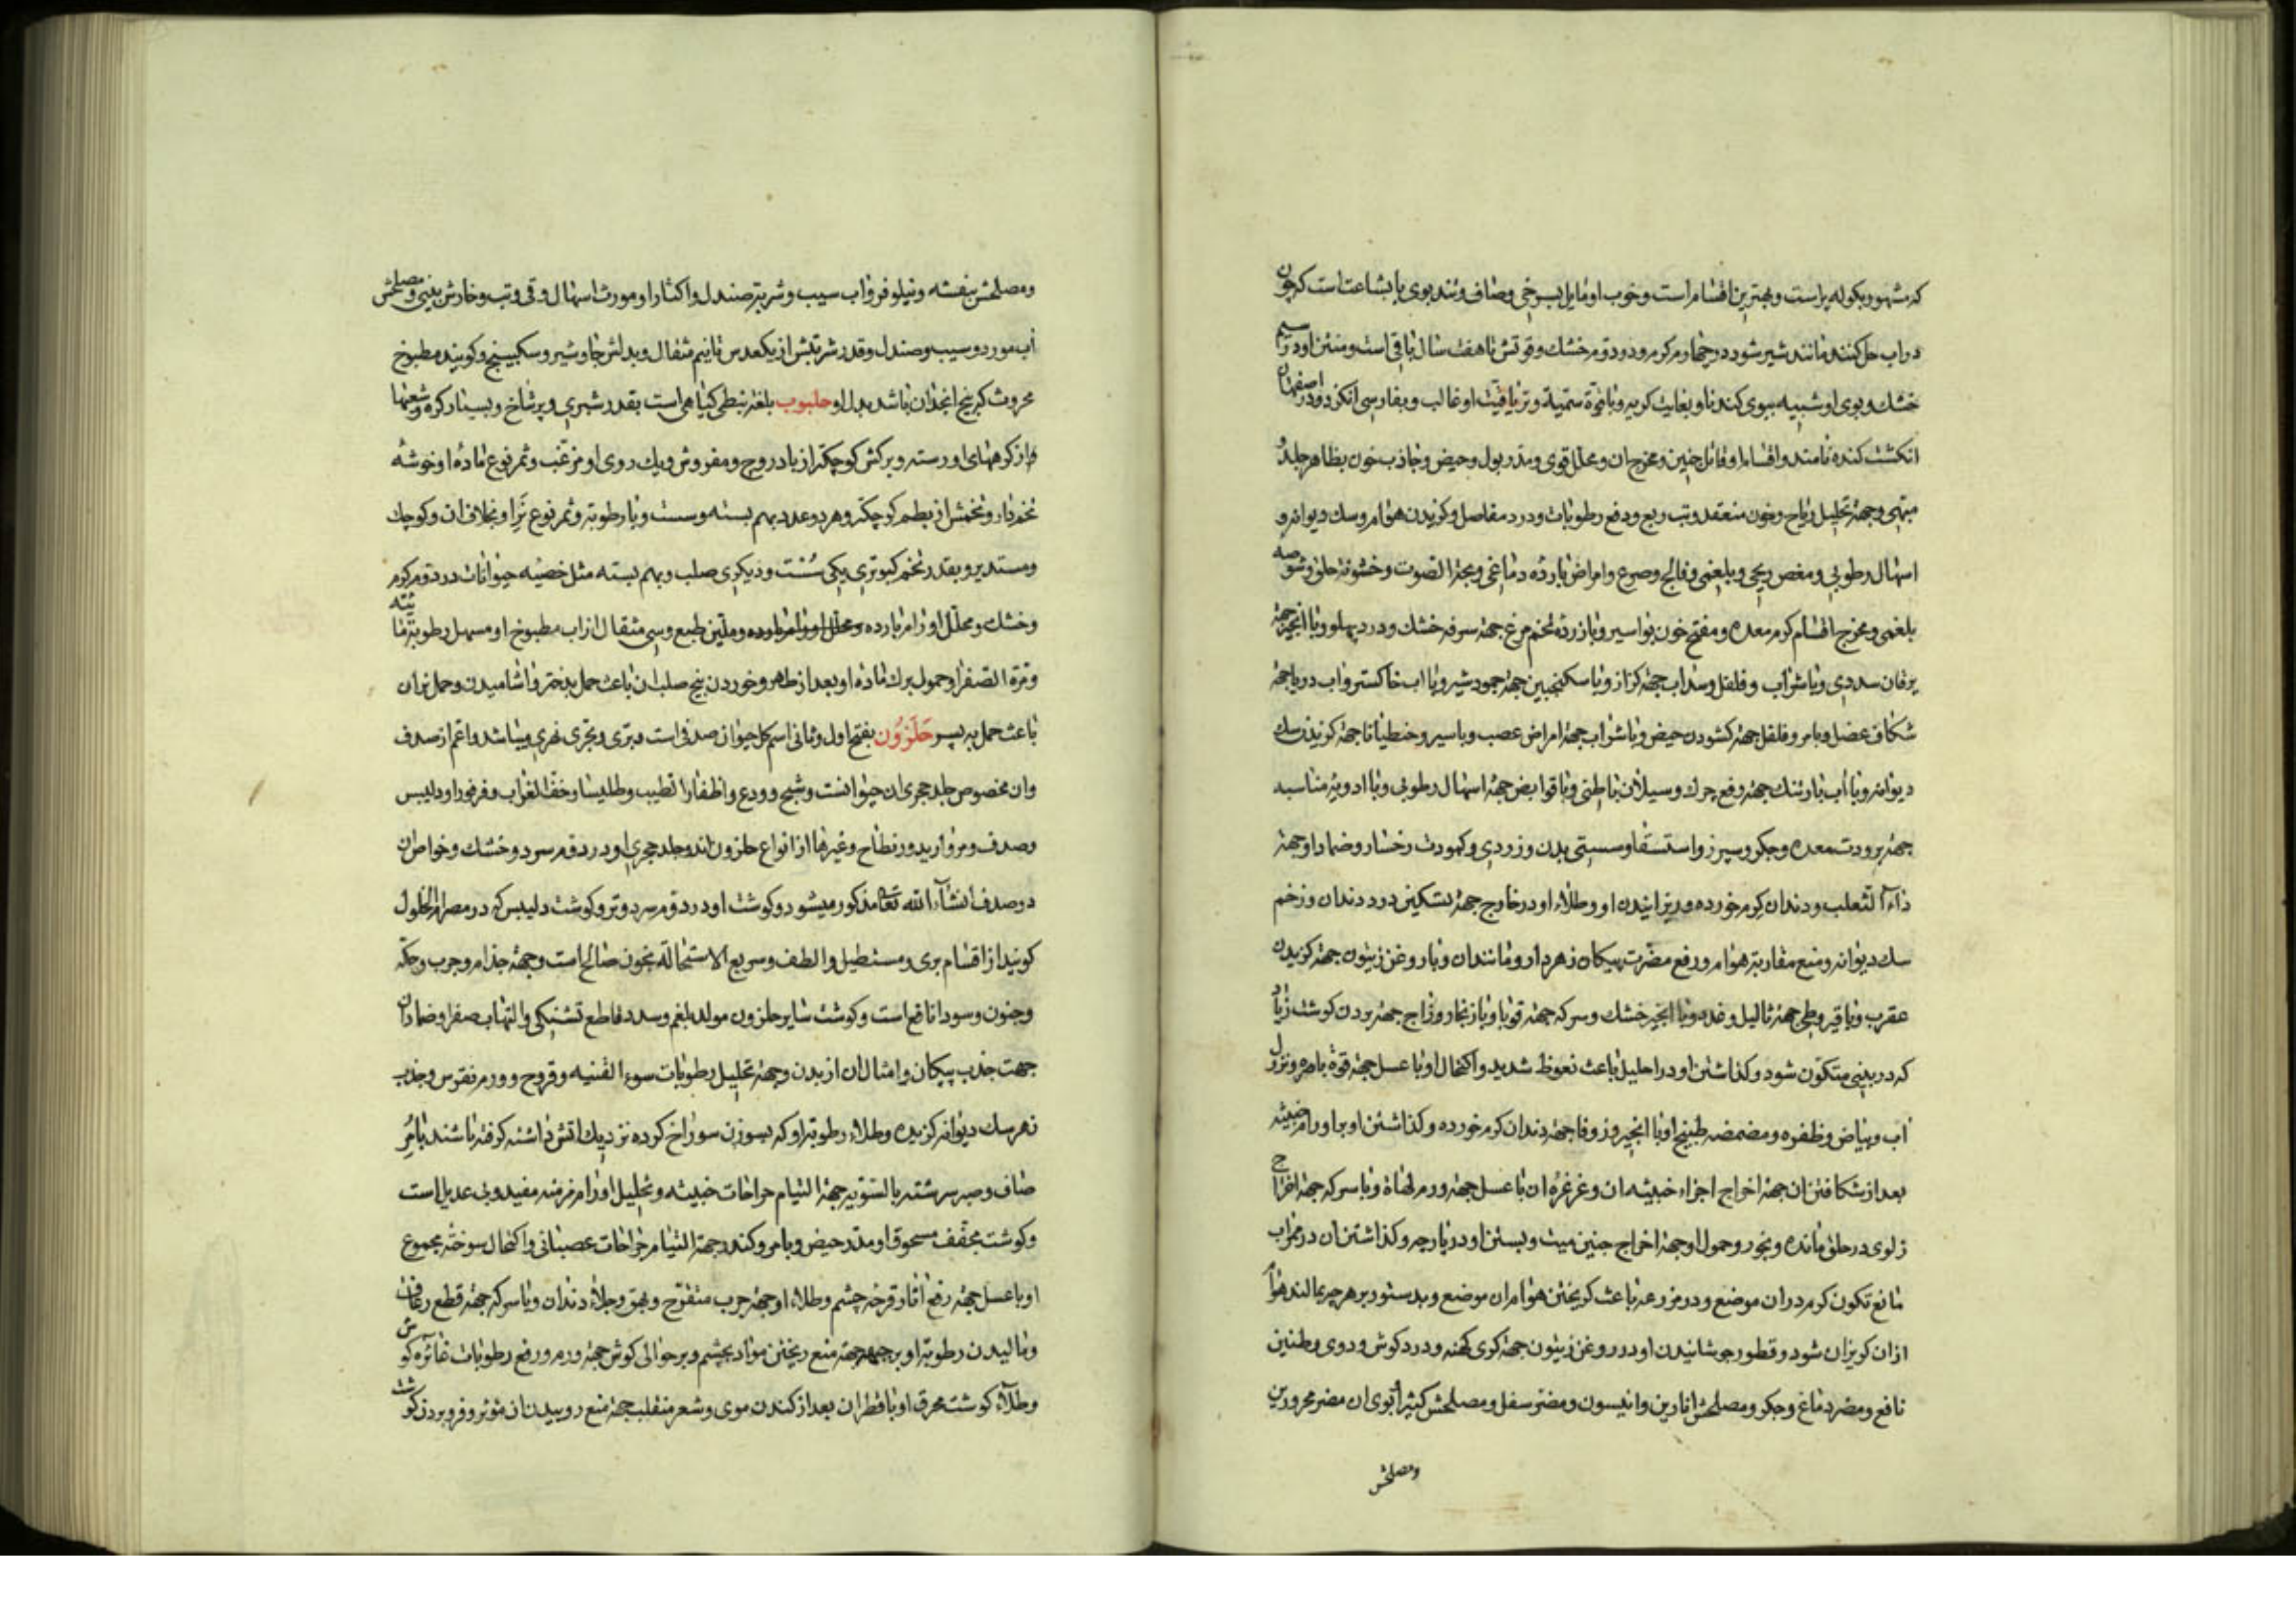 که مشهور بکوله پر است و بهترین اقسام است و خوب او مایل بسرخی و صاف و تندبوی با بشاعت است که چون
در اب حل کنند مانند شیر شود در چهارم کرم و در دوم خشك و قوتش تا هفت سال باقی است و منتن او در سیم
خشك و بوی او شبیه ببوی کندنا و بغایت کریه و با قوة سمیه و تریاقیت او غالب و بفارسی انکزد و در اصفهان
انکشت کنده نامند و اقسام او قاتل جنین و مخرج ان و محلل قوی و مدر بول و حیض و جاذب خون بظاهر جلد و
مبهی و جهة تحلیل ریاح و خون منعقد و تب ربع و دفع رطوبات و درد مفاصل و کزیدن هوام و سك دیوانه و
اسهال رطوبی و مغص ریحی و بلغمی و فالج و صرع و امراض بارده دماغی و بجهة الصوت و خشونة حلق و شوصه
بلغمی و مخرج اقسام کرم معده و مفتح خون بواسیر و با زرده تخم مرغ جهة سرفه خشك و درد پهلو و با انجیر جهة
یرقان سددی و با شراب و فلفل و سداب جهة کزاز و با سکنجبین جهة جمود شیر و با اب خاکستر و اب دریا جهة
شکاف عضل و با مر و فلفل جهة کشودن حیض و با شراب جهة امراض عصب و با سیر و جنطیانا جهة کزیدن سك
دیوانه و با آب بارتنك جهة رفع چرك و سیلان باطنی و با قوابض جهة اسهال رطوبی و با ادویه مناسبه
جهة برودت معده و جکر و سپرز و استسقا و سستی بدن و زردی و کمودت رخسار و ضماد او جهة
داء الثعلب و دندان کرم خورده و ریزانیدن او و طلاء او در خارج جهة تسکین درد دندان و زخم
سك دیوانه و منع مقاربة هوام و رفع مضرت پیکان زهردار و مانند ان و با روغن زیتون جهة کزیدن
عقرب و با قیروطی جهة ثالیل و غدد و با انجیر خشك و سرکه جهة قوبا و با زنجار و زاج جهة بردن کوشت زیاد
که در بینی متکون شود و کذاشتن او در احلیل باعث نعوظ شدید و اکتحال او با عسل جهة قوة باصره و نزول
آب و بیاض و ظفره و مضمضه طبیخ او با انجیر و زوفا جهة دندان کرم خورده و کذاشتن او بر اورام خبیثه
بعد از شکافتن ان جهة اخراج اجزاء خبیثه ان و غرغرۀ ان با عسل جهة ورم لهاة و با سرکه جهة اخراج
زلوی در حلق مانده و بخور و حمول او جهة اخراج جنین میت و بستن او در پارچه و کذاشتن ان در محراب
مانع تکون کرم در ان موضع و در مزرعه باعث کریختن هوام ان موضع و بدستور بر هر چه بمالند هوام
ازان کریزان شود و قطور جوشانیدن او در روغن زیتون جهة کری کهنه و درد کوش و دوی و طنین
نافع و مضر دماغ و جکر و مصلحش انارین و انیسون و مضر سفل و مصلحش کثیرا و بوی ان مضر محرورین
ومصلحش
ومصلحش بنفشه و نیلوفر و اب سیب و شربة صندل و اکثار او مورث اسهال و قی و تب و خارش بینی و مصلحش
آب مورد و سیب و صندل و قدر شربتش از یکعدس تا نیم مثقال و بدلش جاوشیر و سکبینج و کویند مطبوخ
محروث که بیخ انجدان باشد بدل او حلبوب بلغة نبطی کیاهی است بقدر شبری و پرشاخ و بسیار کره و شعبها
از کرههای او رسته و برکش کوچکتر از بادروج و مفروش و یك روی او مزغب و ثمر نوع ماده او خوشه
تخم‌دار و تخمش از بطم کوچکتر و هر دو عدد بهم بسته و سست و با رطوبة و ثمر نوع نر او بخلاف ان و کوچك
و مستدیر و بقدر تخم کبوتری یکی سست و دیکری صلب و بهم بسته مثل خصیه حیوانات در دوم کرم
و خشك و محلل اورام بارده و محلل اورام بارده و ملین طبع و سی مثقال از اب مطبوخ او مسهل رطوبة مائیه
و مرة الصفرا و حمول برك ماده او بعد از طهر و خوردن بیخ صلب ان باعث حمل بدختر و اشامیدن و حمل نر ان
باعث حمل بپسر حَلَزُون بفتح اول و ثانی اسم کل حیوان صدفی است و بری و بحری و نهری میباشد و اعم از صدف
وان مخصوص جلد حجری ان حیوانست و شنج و ودع و اظفار الطیب و طلینا و خف الغراب و فرفورا و دلیبس
وصدف و مروارید و رنطاح و غیرها از انواع حلزون اند و جلد حجری او در دوم سرد و خشك و خواص ان
در صدف انشاء الله تعالی مذکور میشود و کوشت او در دوم سرد و تر و کوشت دلیبس که در مصر ام الخلول
کویند از اقسام بری و مستطیل و الطف و سریع الاستحاله بخون صالح است و جهة جذام و جرب و حکه
و جنون و سودا نافع است و کوشت سایر حلزون مولد بلغم و سدد قاطع تشنکی و التهاب صفرا و ضماد ان
جهت جذب پیکان و امثال ان از بدن و جهة تحلیل رطوبات سوء القنیه و قروح و ورم نقرس و جذب
زهر سك دیوانه کزیده و طلاء رطوبة او که بسوزن سوراخ کرده نزدیك اتش داشته کرفته باشند با مُر
صاف و صبر سرشته بالسویه جهة التیام جراحات خبیثه و تحلیل اورام مزمنه مفید و بی عدیل است
و کوشت مجفف مسحوق او مدر حیض و با مر و کندر جهة التیام جراحات عصبانی و اکتحال سوخته مجموع
او با عسل جهة رفع اثار قرحه چشم و طلاء او جهة جرب متقرح و بهق و جلاء دندان و با سرکه جهة قطع رعاف
و مالیدن رطوبة او بر جبهه جهة منع ریختن مواد بچشم و بر حوالی کوش جهة ورم و رفع رطوبات غائره کوش
و طلاء کوشت محرق او با قطران بعد از کندن موی و شعر منقلب جهة منع روییدن ان مؤثر و فرو بردن کوشت